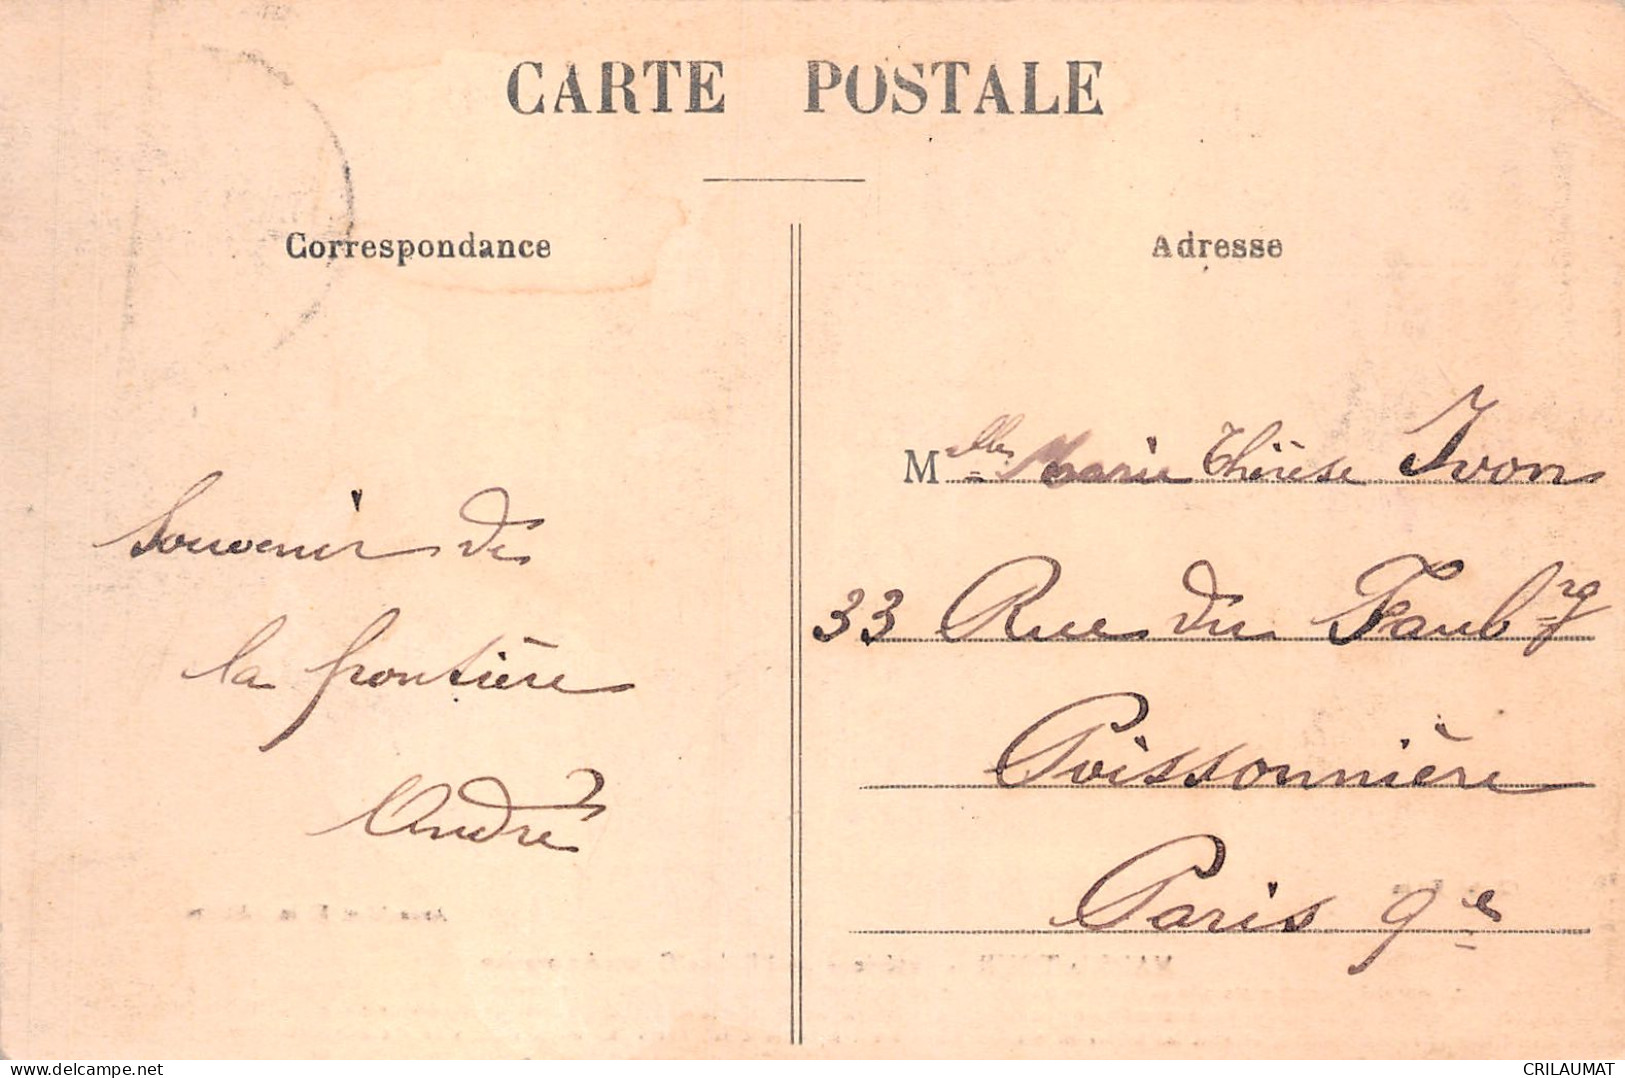 CARTE POSTALE
Correspondance
Adresse
Souvenir de
la frontière
André
Mlle Marie Thérèse Ivon
33 Rue du Faubrg
Poissonnière
Paris 9e
delcampe.net
CRILAUMAT